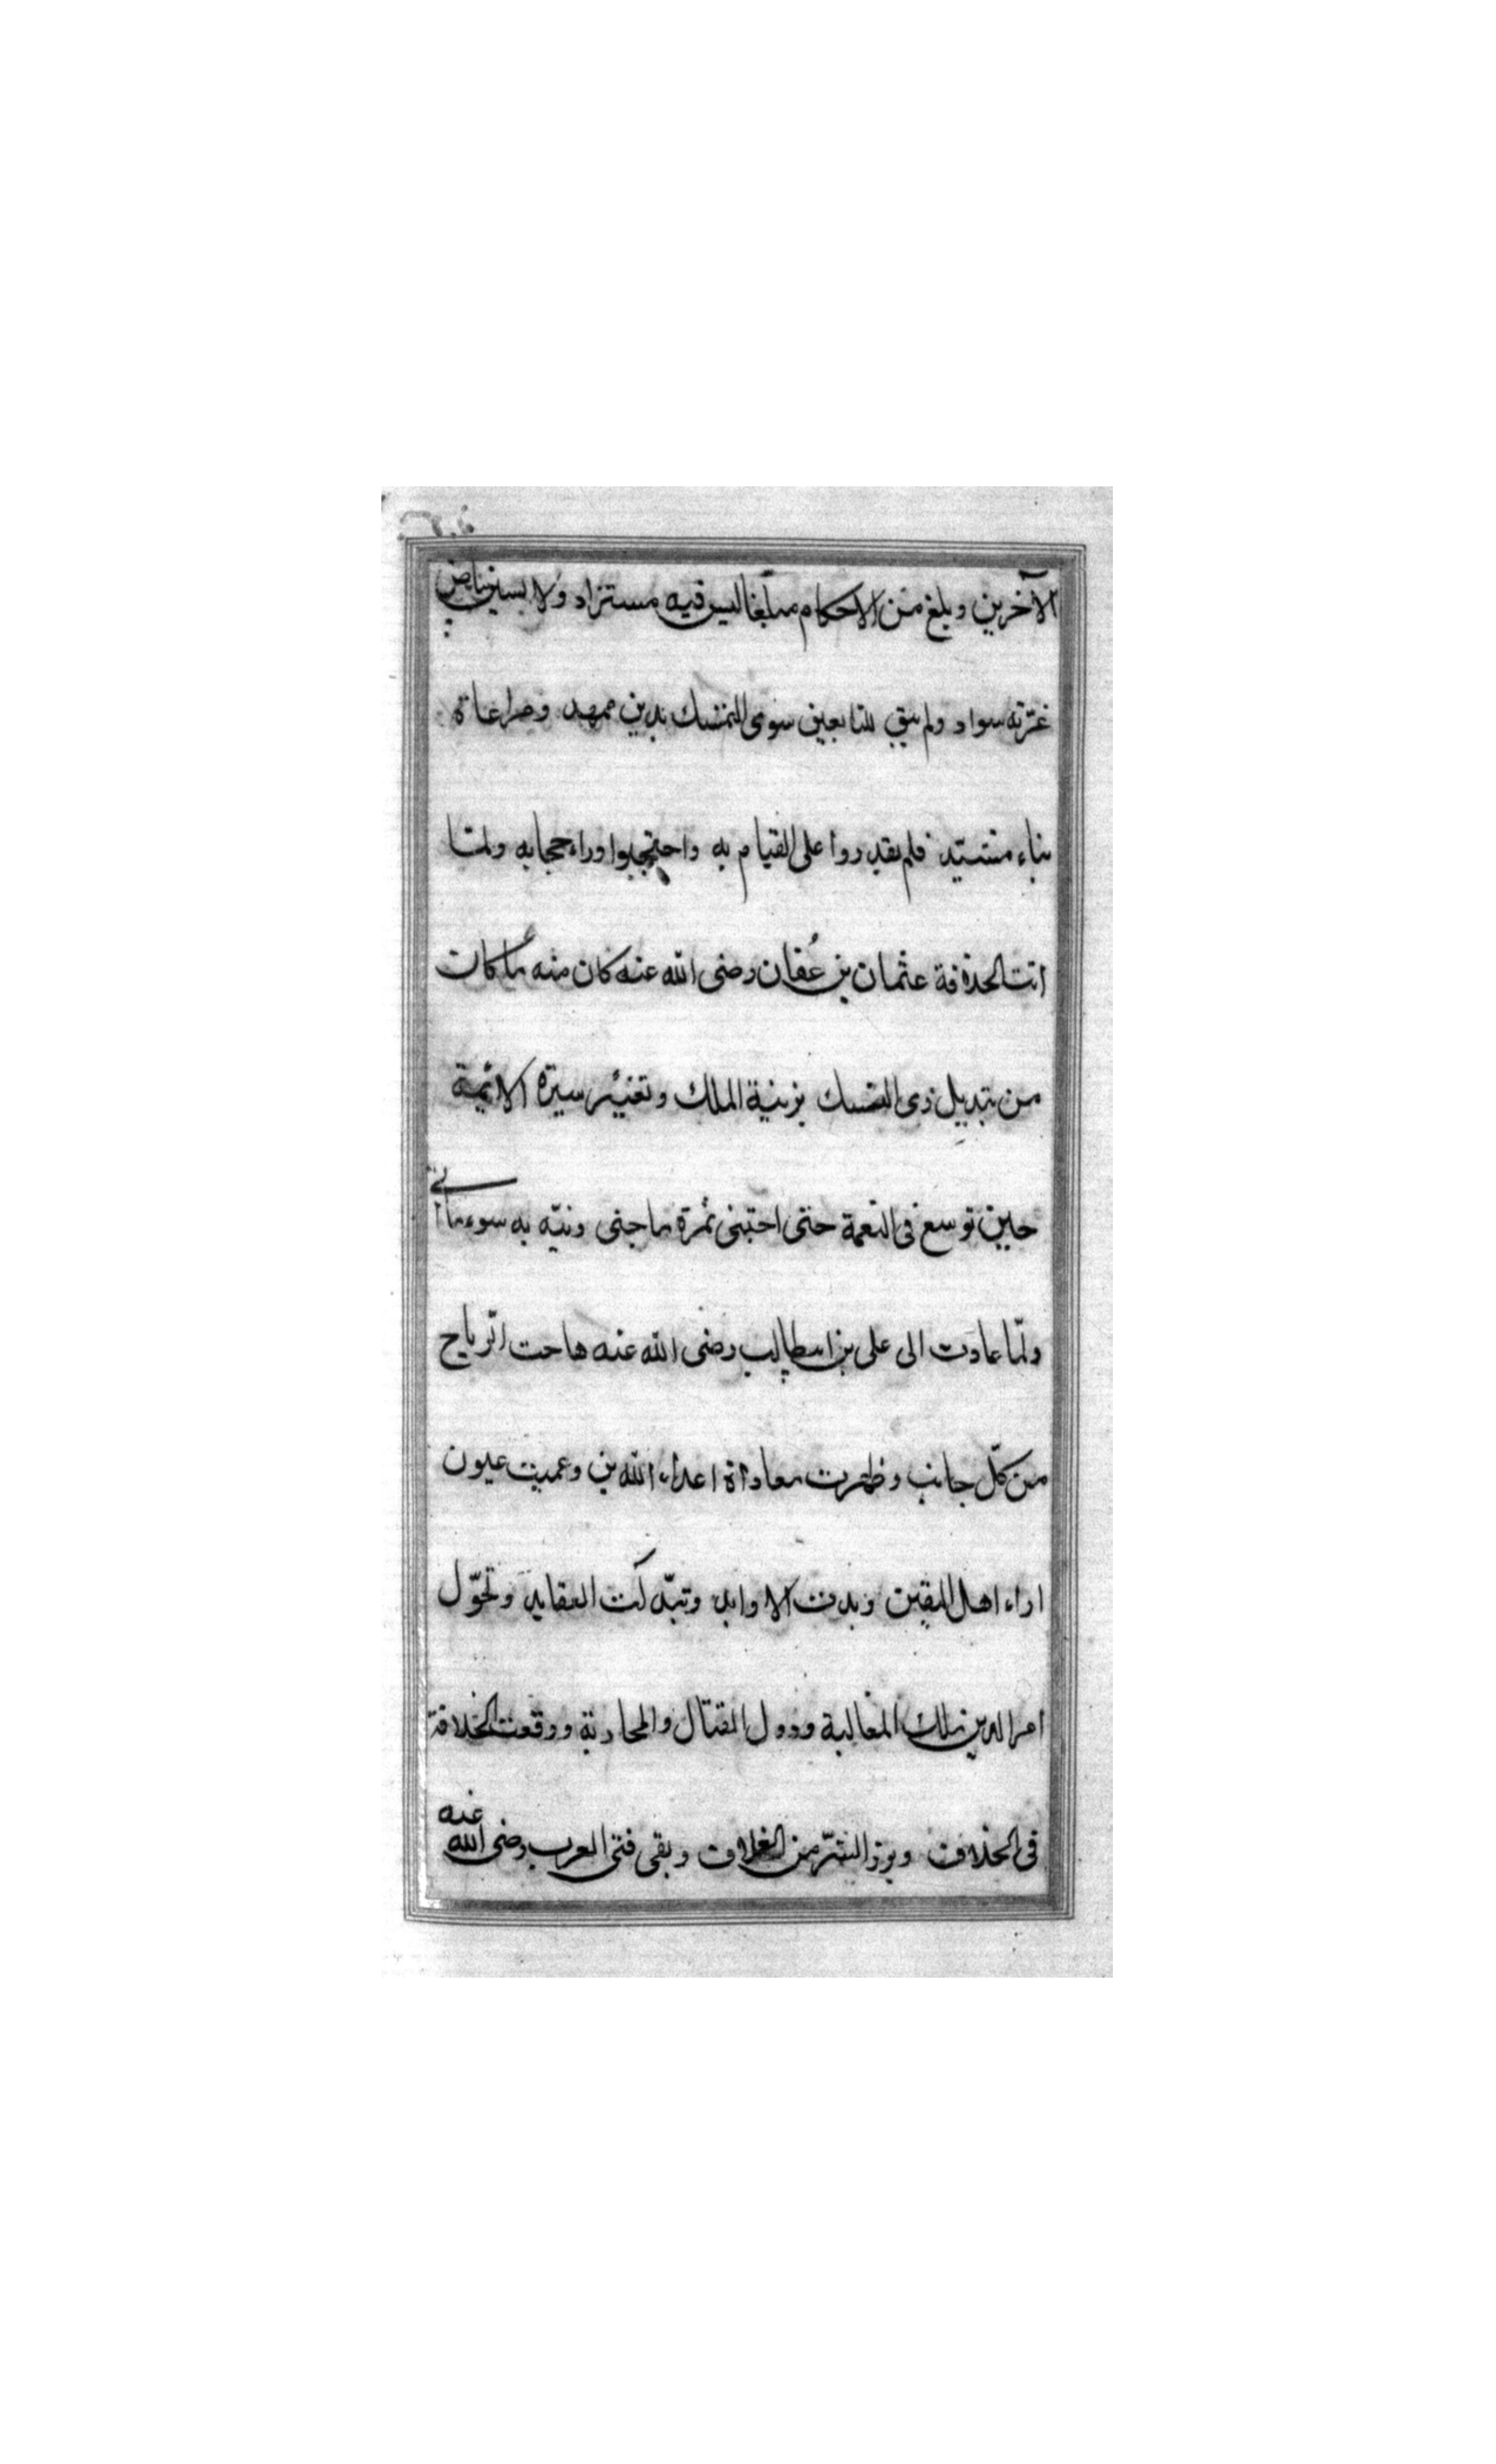 الآخرين وبلغ من الاحكام مبلغا ليس فيه مستزاد ولا بسنى بياض
غرّته سواد ولم يبقى للتابعين سوى التمسك بدين ممهد ومراعاة
بناء مشيّد فلم يقدروا على القيام به واحتجبوا وراء حجابه ولمّا
اتت الخلافة عثمان بن عُفان رضى الله عنه كان منه ما كان
من تبديل زى التنسك بزينة الملك وتغيير سيرة الائمة
حين توسع فى النعمة حتى اجتنى ثمرة ما جنى
ولمّا عادت الى على بن ابيطالب رضى الله عنه هاجت الرياح
من كلّ جانب وظهرت معاداة اعداء الله بن وعميت عيون
اراء اهل اليقين وبدت الاوابد وتبدّلت العقايد وتحوّل
امر الدين بملك المغالبة ودول المقتال والمحاربة ووقعت الخلافة
فى الخلاف وبرز الشرّ من الغلاف وبقى فتى العرب رضى الله عنه